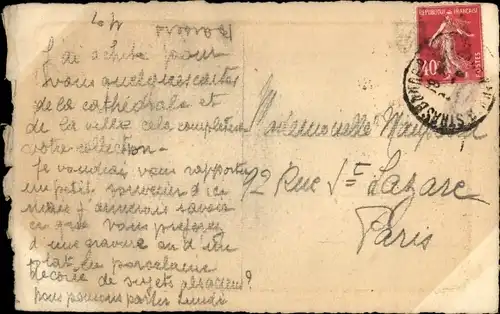 J'ai acheté pour
vous quelques cartes
de la cathédrale et
de la ville cela complétera
votre collection -
Je voudrais vous rapporter
un petit souvenir d'ici
mais j'aimerais savoir
ce que vous préférez
d'une gravure ou d'un
plat en porcelaine
décoré de sujets alsaciens?
nous pouvons parler lundi
REPUBLIQUE FRANCAISE
40
POSTES
STRASBOURG
Mademoiselle
92 Rue St Lazare
Paris